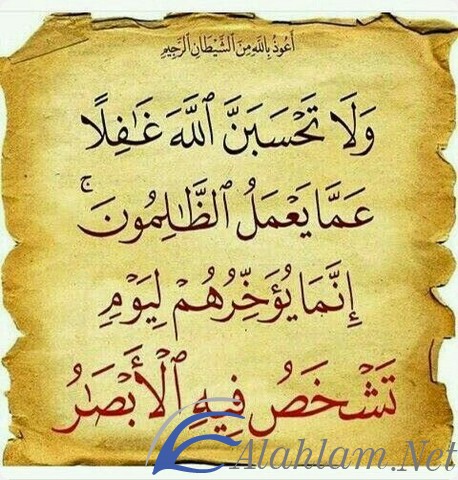 أَعُوذُ بِاللَّهِ مِنَ الشَّيْطَانِ الرَّجِيمِ
وَلَا تَحْسَبَنَّ ٱللَّهَ غَـٰفِلًا
عَمَّا يَعْمَلُ ٱلظَّـٰلِمُونَ ۚ
إِنَّمَا يُؤَخِّرُهُمْ لِيَوْمٍ
تَشْخَصُ فِيهِ ٱلْأَبْصَـٰرُ
Alahlam.Net